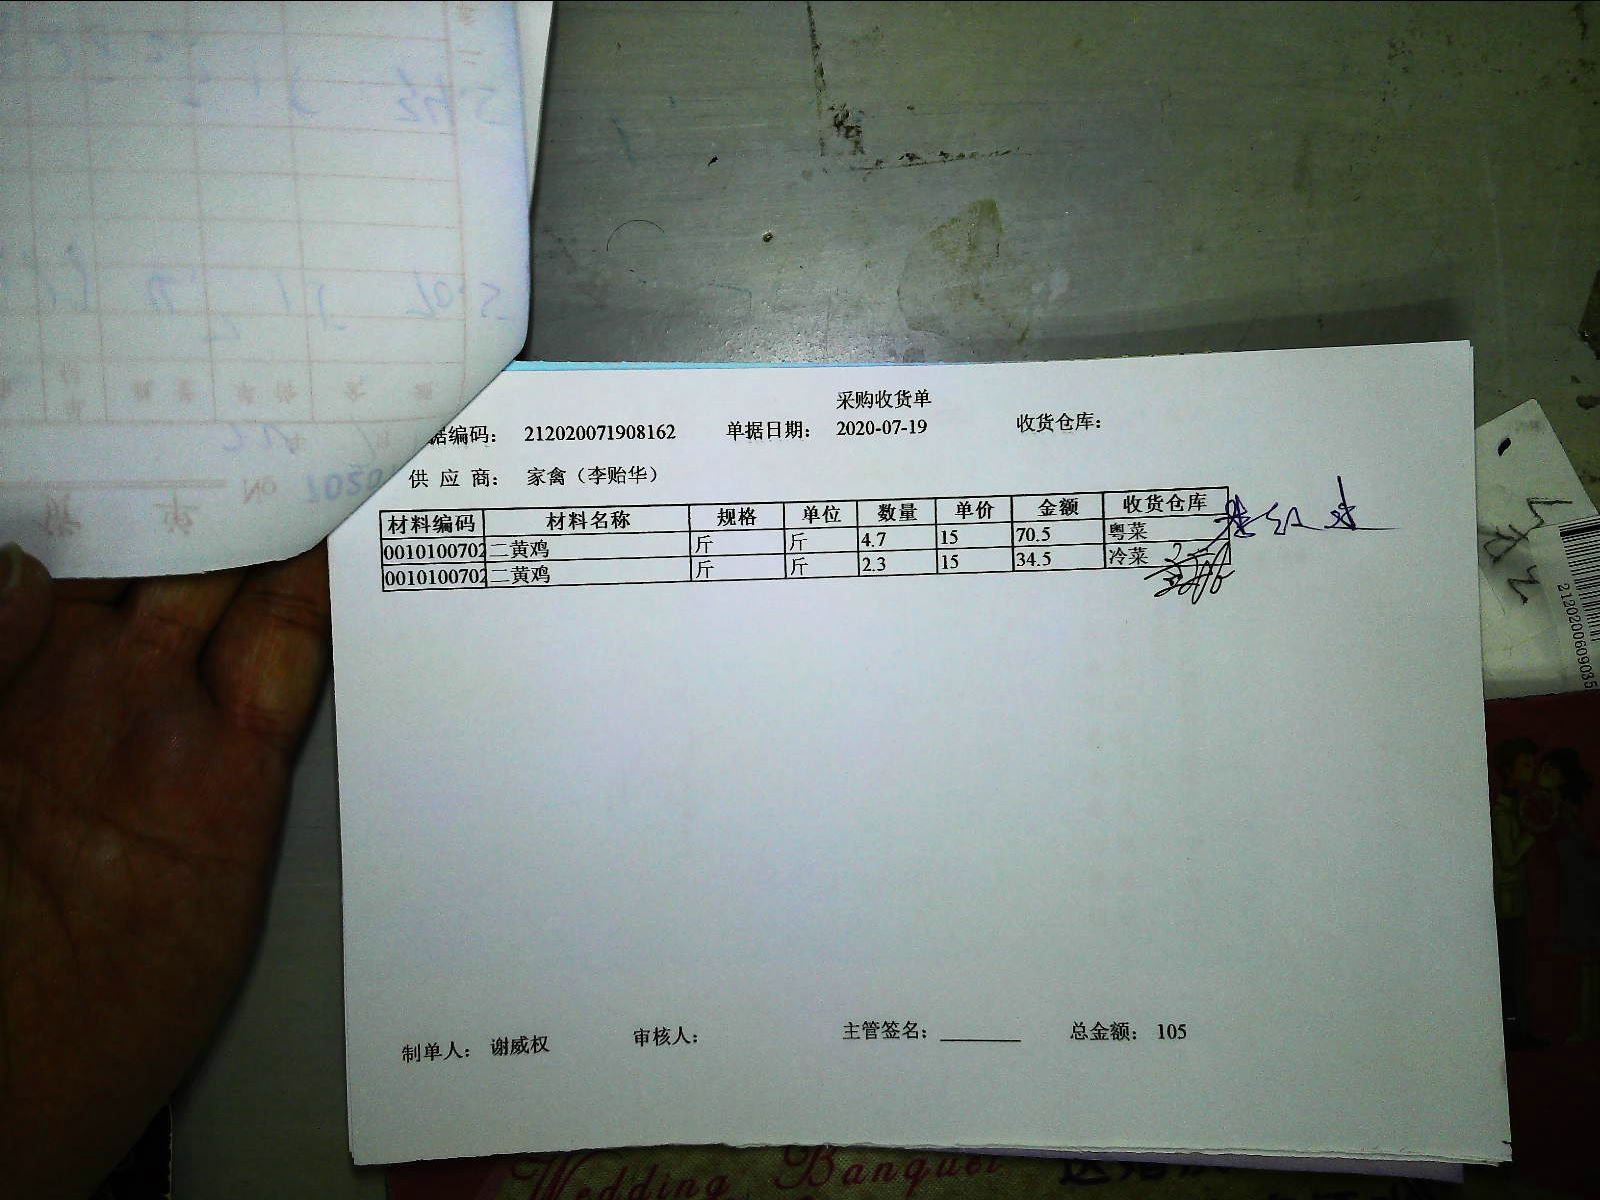 采购收货单
据编码： 212020071908162 单据日期： 2020-07-19 收货仓库：
供 应 商： 家禽（李贻华）
材料编码 材料名称 规格 单位 数量 单价 金额 收货仓库
0010100702 二黄鸡 斤 斤 4.7 15 70.5 粤菜
0010100702 二黄鸡 斤 斤 2.3 15 34.5 冷菜
制单人： 谢威权 审核人： 主管签名： 总金额： 105
2120200609035
Wedding Banquet